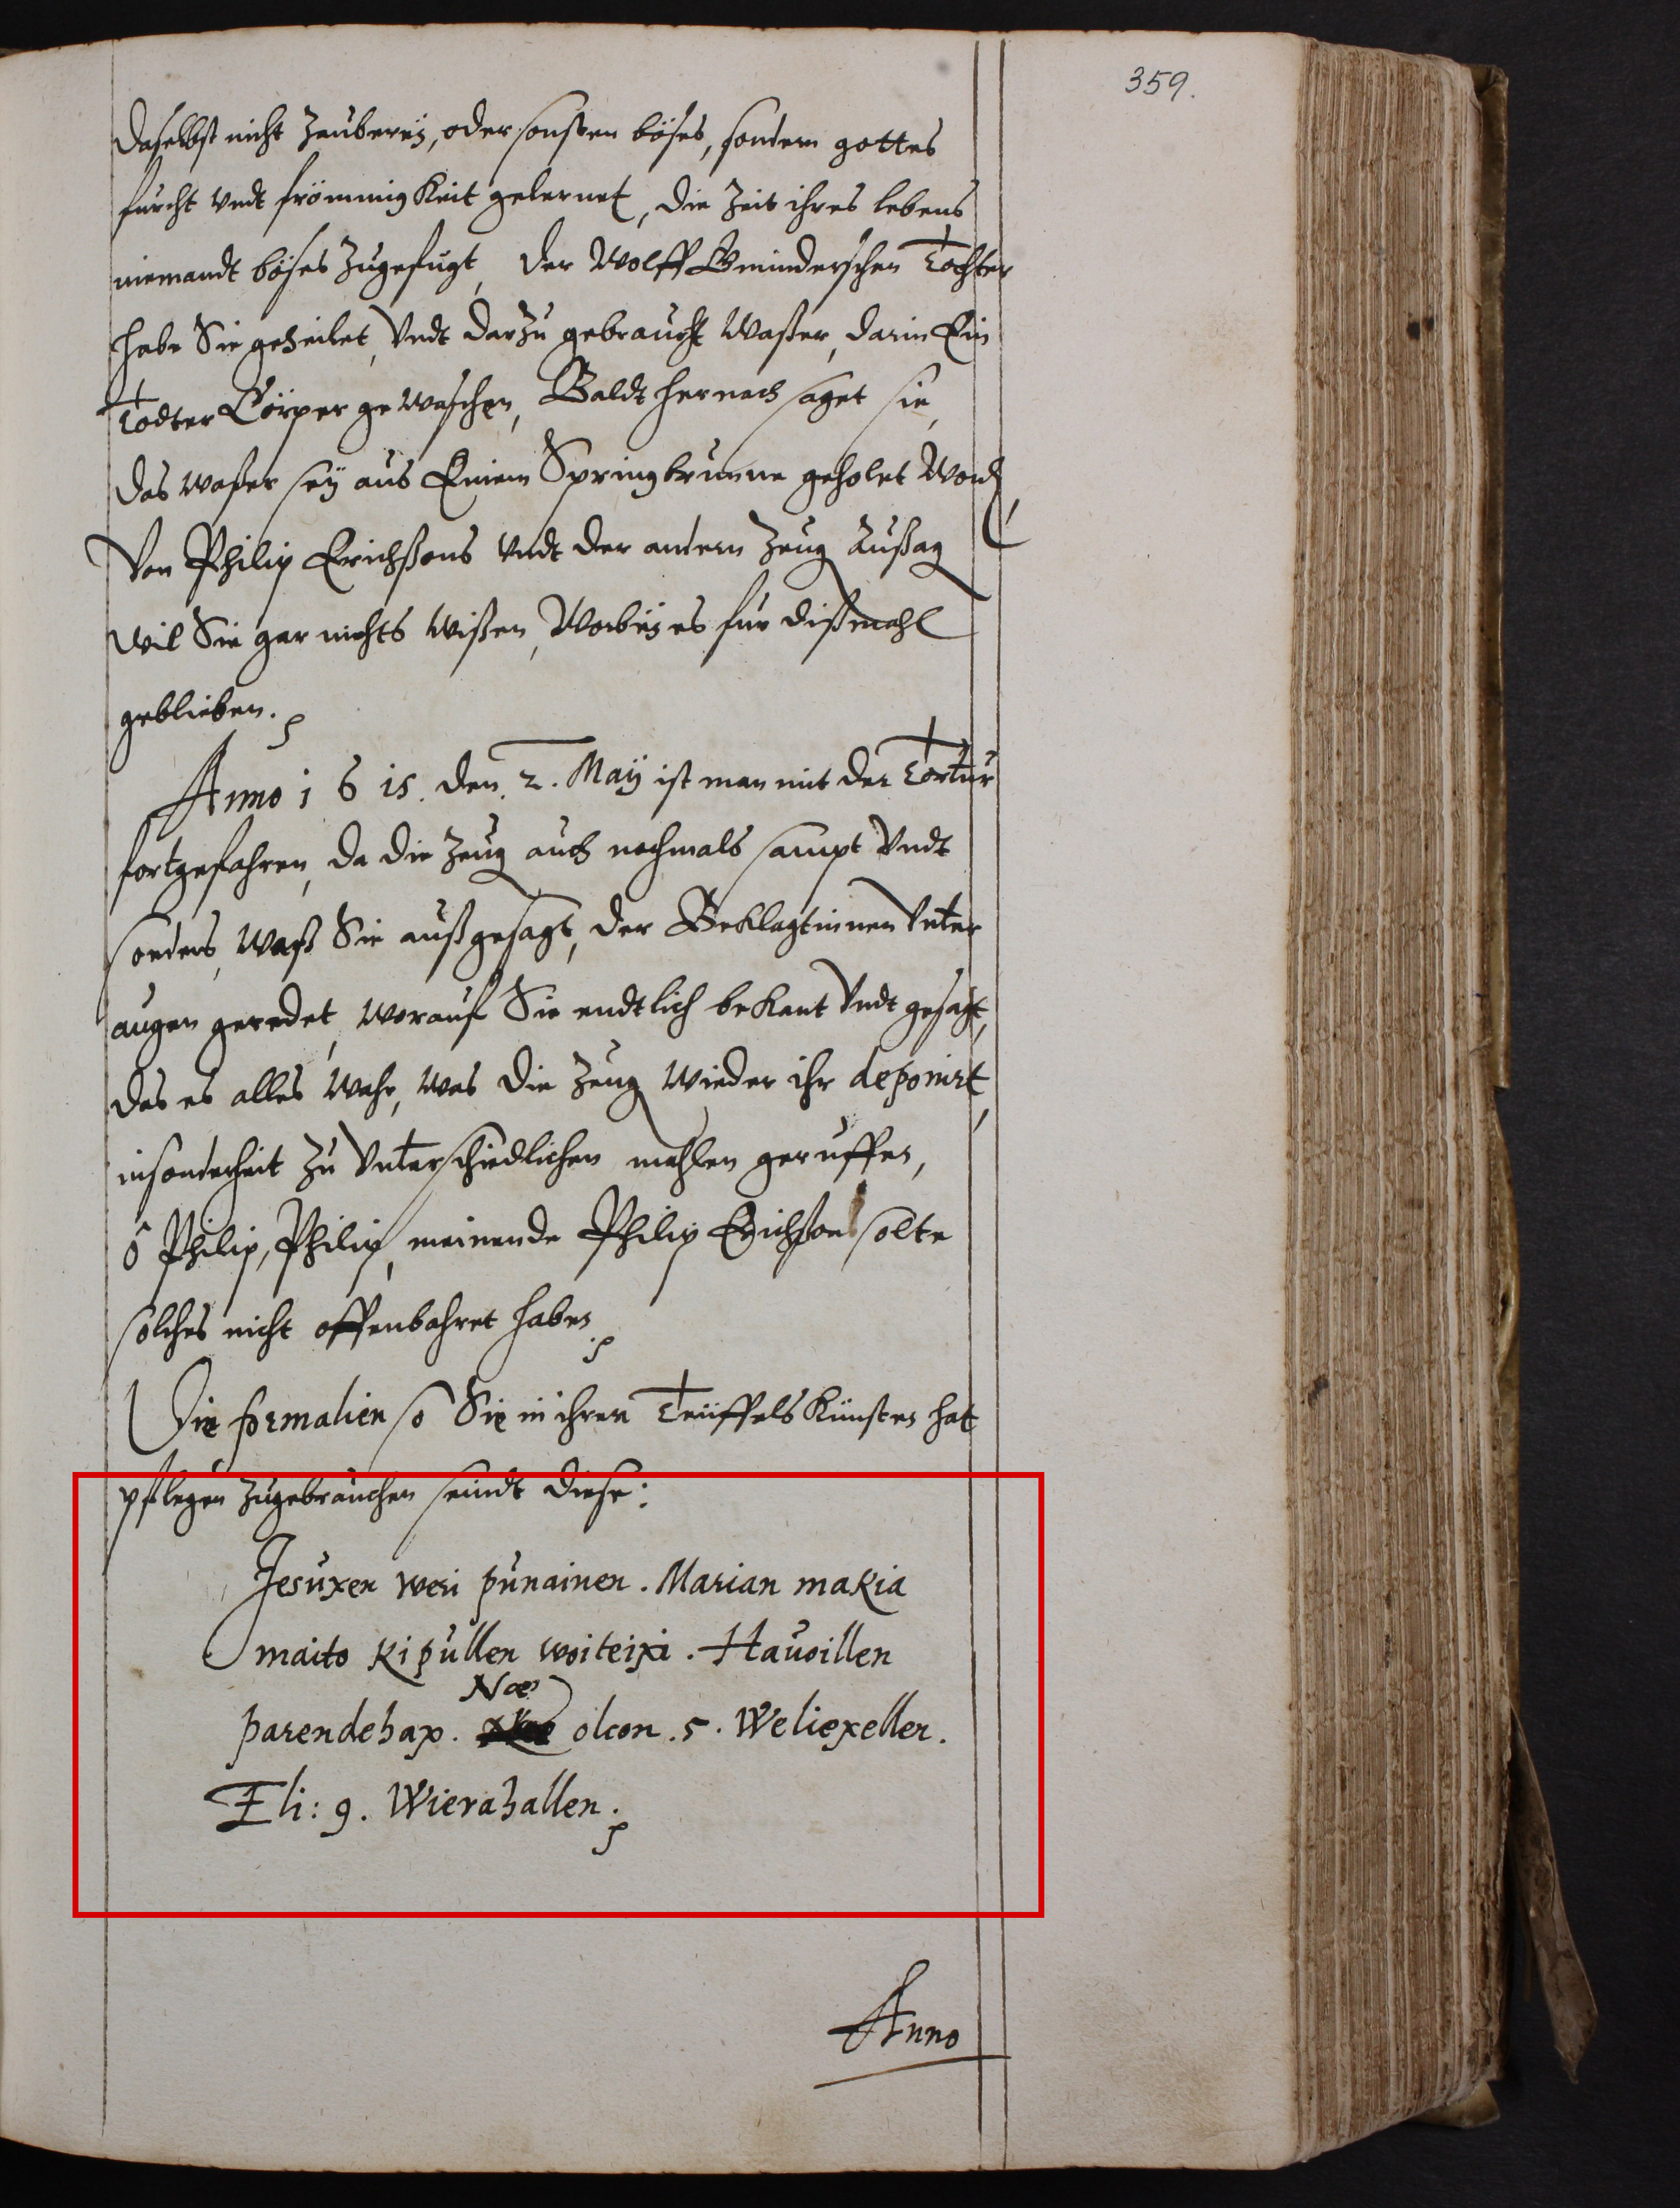 359.
daselbst nicht Zauberey, oder sonsten böses, sondern gottes
furcht undt frömmigkeit gelernet, die Zeit ihres lebens
niemandt böses zugefugt, der Wolff Gminderschen Tochter
habe Sie geheilet, Undt darzu gebraucht Waßer, darin Ein
Todter Cörper gewaschen, Baldt hernach saget sie,
das waßer seÿ aus Einem Springbrunne geholet Word,
Von Philip Erichßons Undt der andern Zeug Außag
wil Sie gar nichts wißen, Wobey es für dißmahl
geblieben.
Anno 1615. den. 2. Maÿ ist man mit der Tortur
fortgefahren, da die Zeug auch nochmals sampt Undt
sonders, Waß Sie außgesagt, der Beklagtinnen Unter
augen geredet, worauf Sie endtlich bekant Undt gesagt,
das es alles Wahr, was die Zeug wieder ihr deponirt,
insonderheit zu Unterschiedlichen mahlen geruffen,
ô Philip, Philip, meinende Philip Erichßon solte
solches nicht offenbahret haben.
Die formalien so Sie in ihren Teüffels Künsten hat
pflegen zugebrauchen seindt diese:
Jesuxen weri punainen. Marian makia
maito kipullen woiteixi. Hauoillen
parendehax. Næ olcon. 5. Weliexellen.
Eli: 9. Wierahallen.
Anno